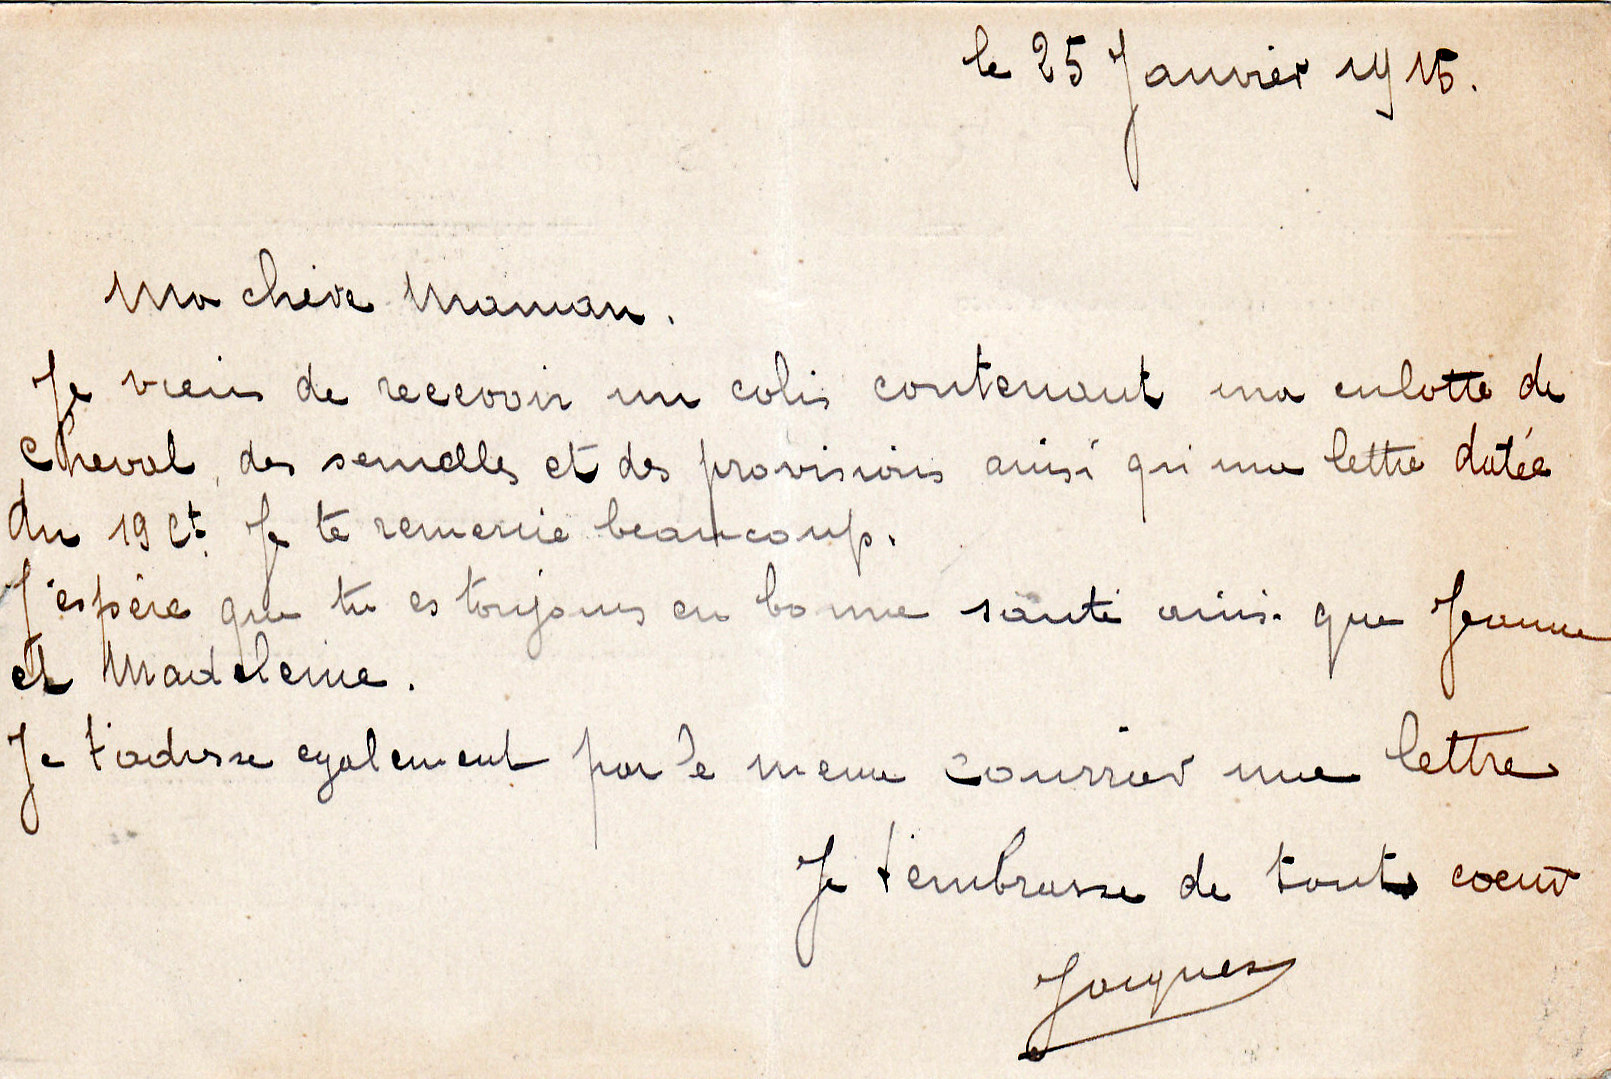 le 25 Janvier 1915.
Ma chère Maman.
Je viens de recevoir un colis contenant ma culotte de
cheval, des semelles et des provisions ainsi qu'une lettre datée
du 19 Ct. Je te remercie beaucoup.
J'espère que tu es toujours en bonne santé ainsi que Jeanne
et Madeleine.
Je t'adresse egalement par le meme courrier une lettre
Je t'embrasse de tout coeur
Jacques